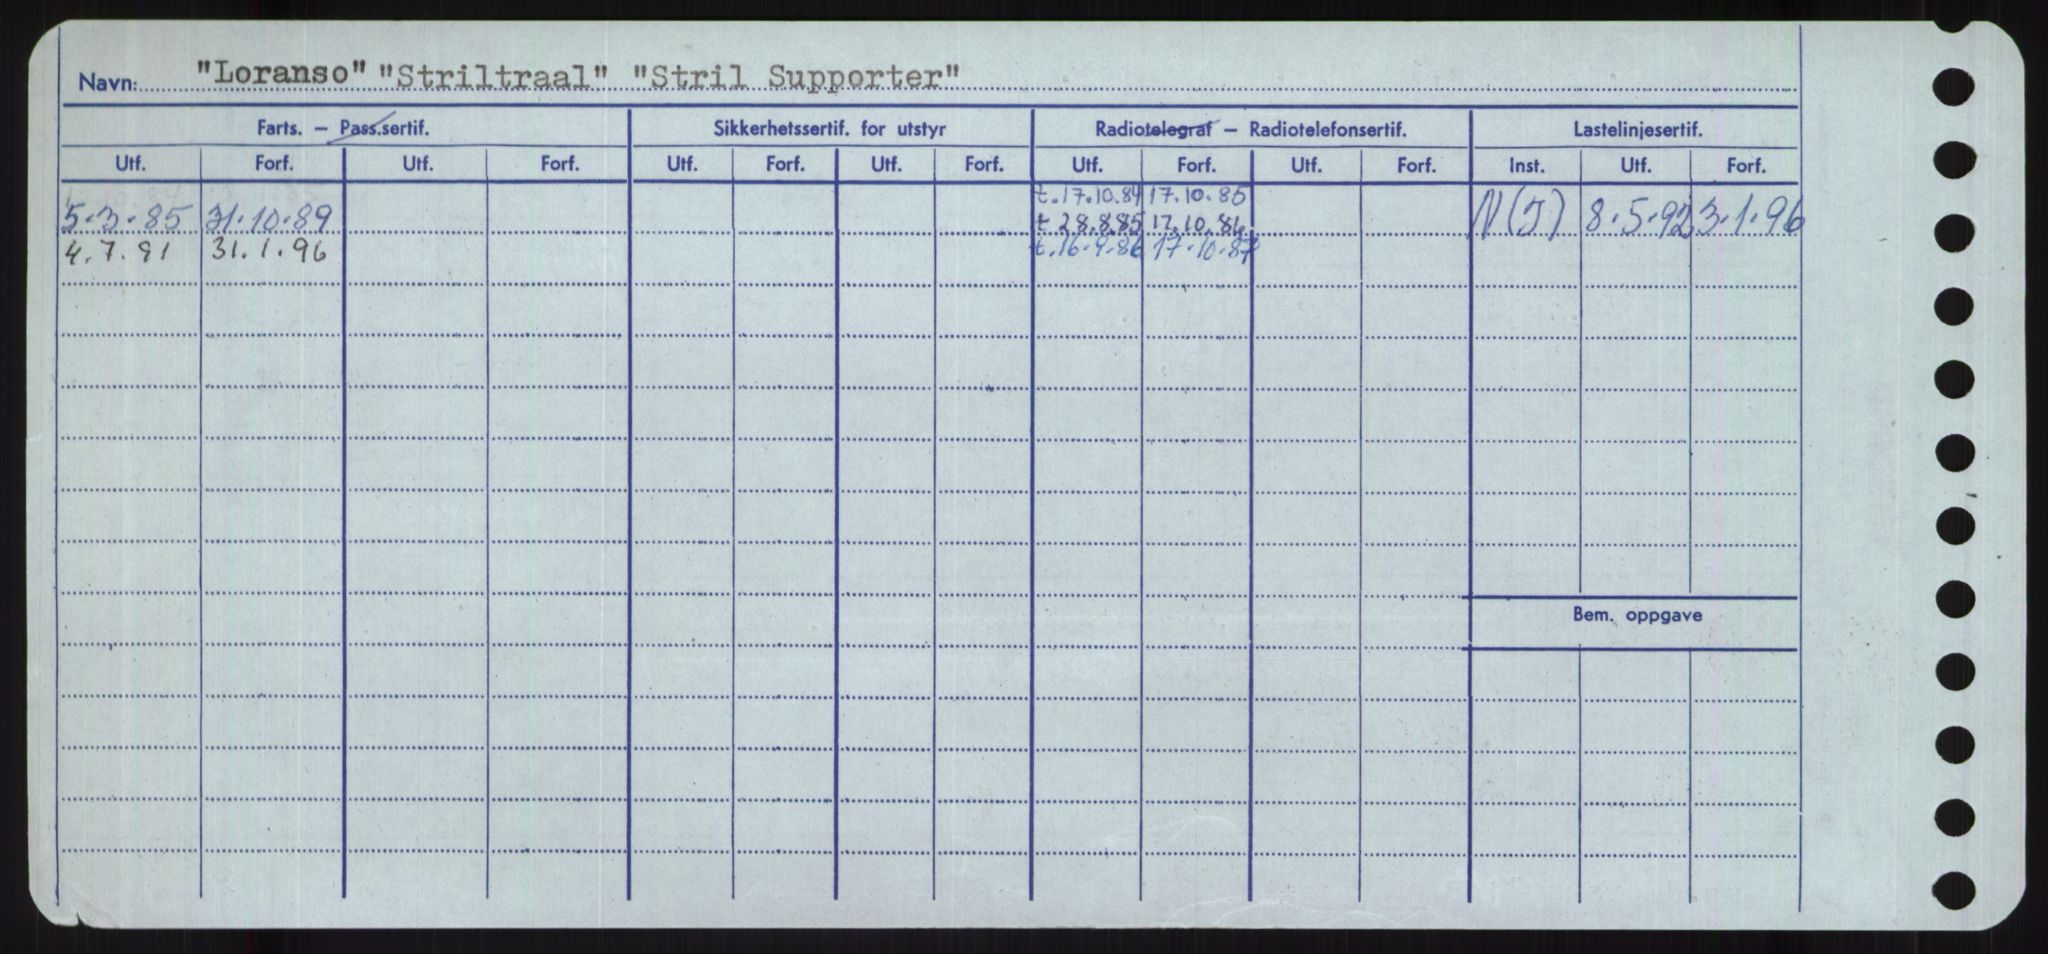 Navn: "Loranso" "Striltraal" "Stril Supporter"
Farts. — Pass.sertif. Sikkerhetssertif. for utstyr Radiotelegraf — Radiotelefonsertif. Lastelinjesertif.
Utf. Forf. Utf. Forf. Utf. Forf. Utf. Forf. Utf. Forf. Utf. Forf. Inst. Utf. Forf.
t. 17.10.84 17.10.85
5.3.85 31.10.89 t 28.8.85 17.10.86 N(J) 8.5.92 3.1.96
4.7.91 31.1.96 t. 16.9.86 17.10.87
Bem. oppgave